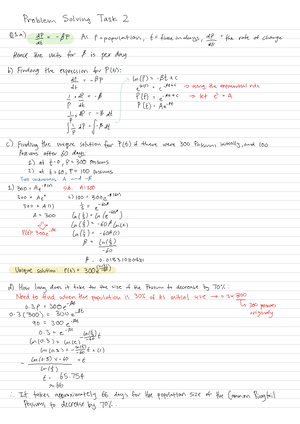 Problem Solving Task 2
Q5a) dP/dt = -βP As P = populations, t = time in days, dP/dt = the rate of change
Hence the units for β is per day
b) Finding the expression for P(t):
dP/dt = -βP
1/P dP/dt = -β
1/P dP = -β dt
∫ 1/P dP = ∫ -β dt
ln(P) = -βt + c
e^ln(P) = e^-βt+c → using the exponential rule
P(t) = e^-βt+c → let e^c = A
P(t) = Ae^-βt
c) Finding the unique solution for P(t) if there were 300 Possums initially, and 100
Possums after 60 days:
1) at t=0, P=300 possums
2) at t=60, P=100 possums
Two unknowns A and β
1) 300 = Ae^-β(0)
300 = Ae^0
300 = A(1)
A = 300
P(t) = 300e^-βt
Sub A=300
2) 100 = 300e^-β(60)
1/3 = e^-60β
ln(1/3) = ln(e^-60β)
ln(1/3) = -60β ln(e)
ln(1/3) = -60β(1)
β = ln(1/3)/-60
β = 0.0183102048
Unique solution: P(t) = 300e
d) How long does it take for the size of the Possums to decrease by 70%
Need to find when the population is 30% of its initial size → 0.3 × 300
300 possums
originally
0.3P = 300e^-βt
0.3(300) = 300e^-βt
90 = 300e^-βt
0.3 = e^-βt
t = 65.754
≈ 66
∴ It takes approximately 66 days for the population size of the Common Ringtail
Possums to decrease by 70%.